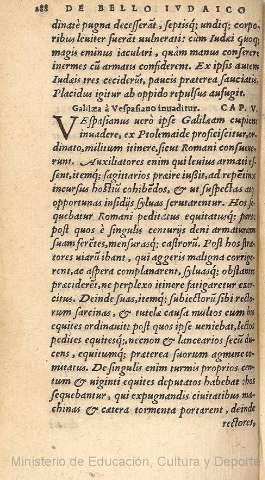 288 DE BELLO IVDAICO
dinatè pugna decesserāt, septisq; undiq; corpo-
ribus leuiter fuerāt uulnerati: cùm Iudæi quoq;
magis eminus iaculari, quàm manus conserere
inermes cū armatis considerent. Ex ipsis autem
Iudæis tres cecidērūt, paucis præterea sauciatis.
Placidus igitur ab oppido repulsus aufugit.
Galilæa à Vespasiano inuaditur. CAP. V.
VEspasianus uerò ipse Galilæam cupiens
inuadere, ex Ptolemaide proficiscitur, or-
dinato, militum itinere, sicut Romani consue-
runt. Auxiliatores enim qui leuius armati es-
sent, itemq; sagittarios præire iussit, ad repētinos
incursus hostiū cohibēdos, & ut suspectas ac
opportunas insidijs syluas scrutarentur. Hos se-
quebatur Romani peditatus equitatusq; pars:
post quos è singulis centurijs deni armaturam
suam ferētes, mensurasq; castrorū. Post hos stra-
tores uiarū ibant, qui aggeris maligna corrige-
rent, ac aspera complanarent, syluasq; obstantes
præciderēt, ne perplexo itinere fatigaretur exer-
citus. Deinde suas, itemq; subiectorū sibi recto-
rum sarcinas, & tutelæ causa multos cum his
equites ordinauit: post quos ipse ueniebat, lectos
pedites equitesq; necnon & lancearios secū du-
cens, equitumq; præterea suorum agmine co-
mitatus. De singulis enim turmis proprios cen-
tum & uiginti equites deputatos habebat: hos
sequebantur, qui expugnandis ciuitatibus ma-
chinas & cætera tormenta portarent, deinde
rectores,
Ministerio de Educación, Cultura y Deporte